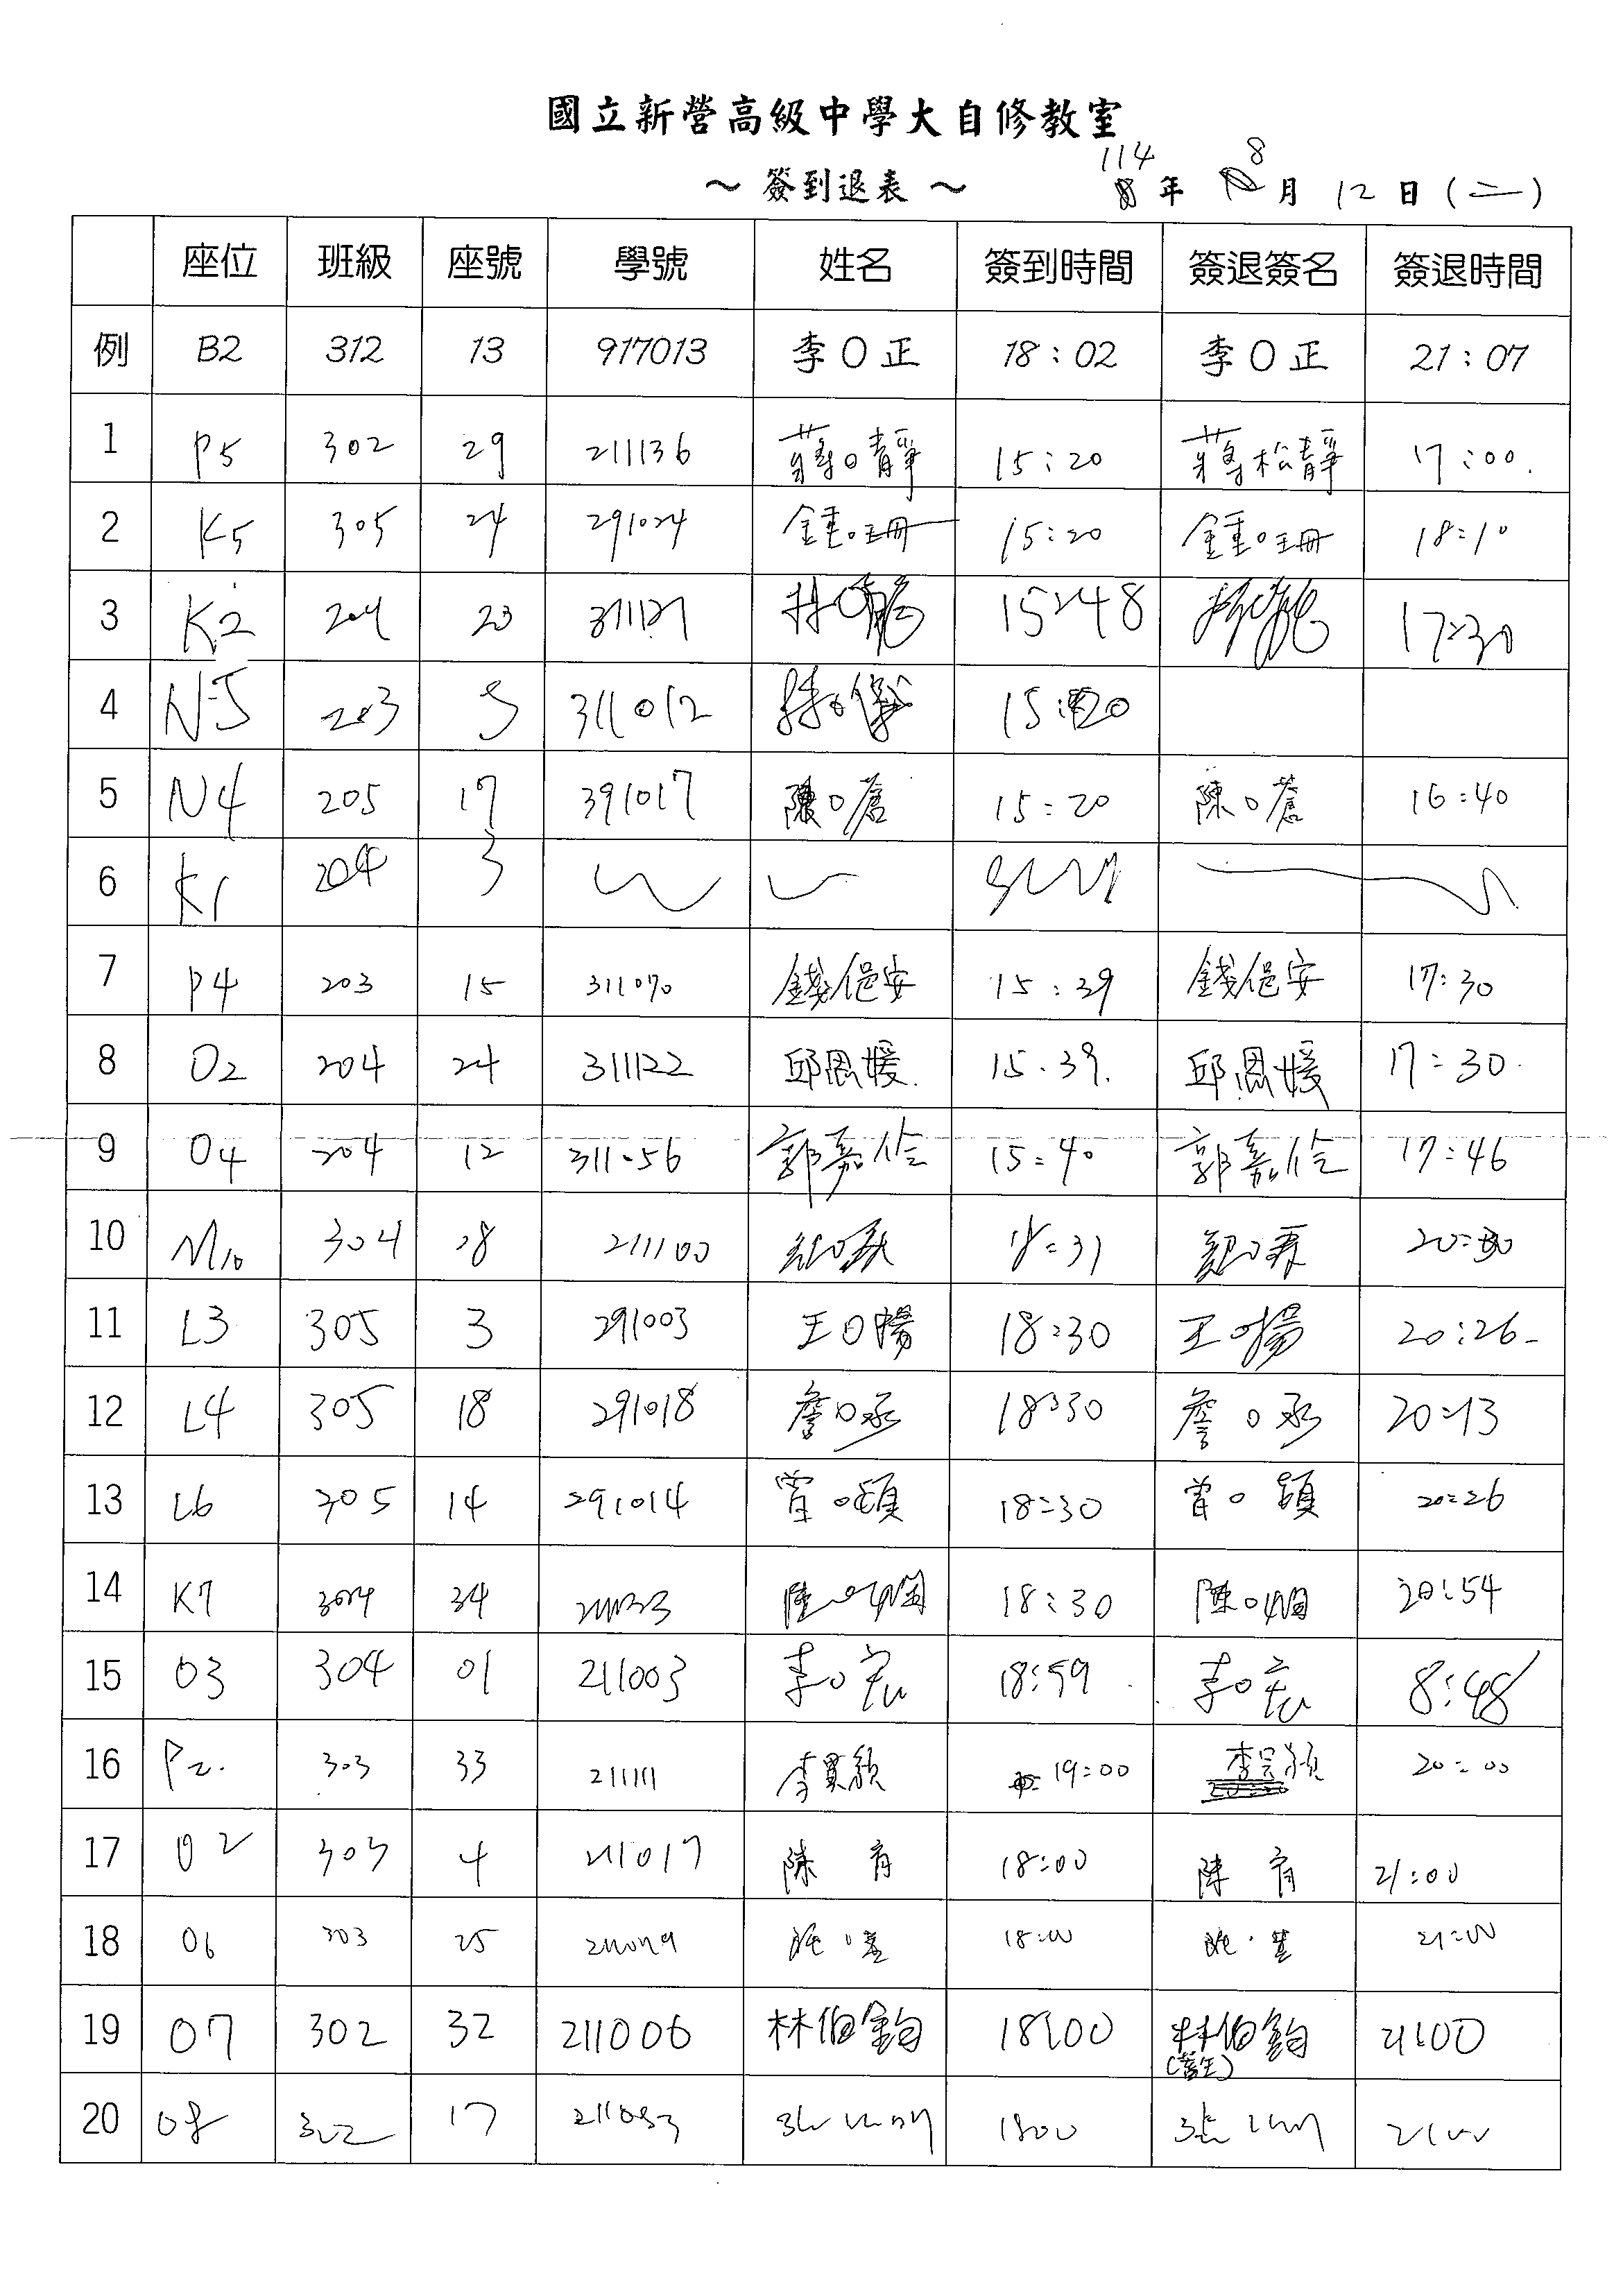 國立新營高級中學大自修教室
～簽到退表～ 114年 8月12日(二)
座位 班級 座號 學號 姓名 簽到時間 簽退簽名 簽退時間
例 B2 312 13 917013 李O正 18:02 李O正 21:07
1 P5 302 29 211136 蔣O靜 15:20 蔣松靜 17:00.
2 K5 305 24 291024 鍾O珊 15:20 鍾O珊 18:10
3 K2 204 23 林O 15:48 17:30
4 N5 203 5 311012 15:20
5 N4 205 17 391017 陳O蒼 15:20 陳O蒼 16:40
6 K1 204 3
7 P4 203 15 311070 錢俋安 15:39 錢俋安 17:30
8 O2 204 24 311122 邱恩媛. 15.39. 邱恩媛 17:30.
9 O4 204 12 311056 郭嘉伶 15:40 郭嘉伶 17:46
10 M10 304 28 211100 18:31 20:30
11 L3 305 3 291003 王O暘 18:30 王O暘 20:26
12 L4 305 18 291018 詹O丞 18:30 詹O丞 20:13
13 L6 305 14 291014 曾O穎 18:30 曾O穎 20:26
14 K7 304 34 陳O嫻 18:30 陳O嫻 20:54
15 O3 304 01 211003 李O宏 18:59 李O宏 8:48
16 P2. 303 33 211111 李 穎 19:00 李 穎 20:00
17 O2 303 4 211017 陳 育 18:00 陳 育 21:00
18 O6 303 25 18:00 21:00
19 O7 302 32 211006 林伯鈞 18:00 林伯鈞 21:00
20 O8 302 17 211053 1800 2100